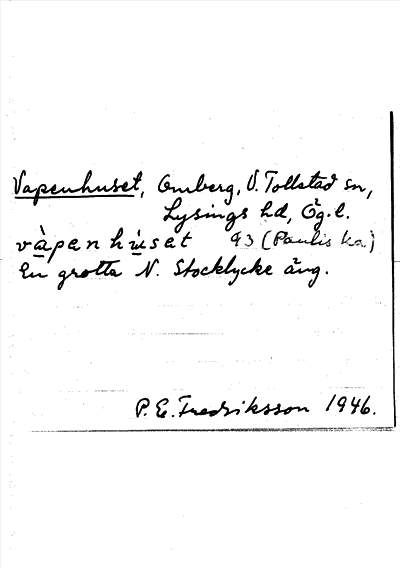 Vapenhuset, Omberg, V. Tollstad sn,
Lysings hd, Ög.l.
vàpenhúset 93 (Paulis ka)
En grotta N. Stocklycke äng.
P. E. Fredriksson 1946.